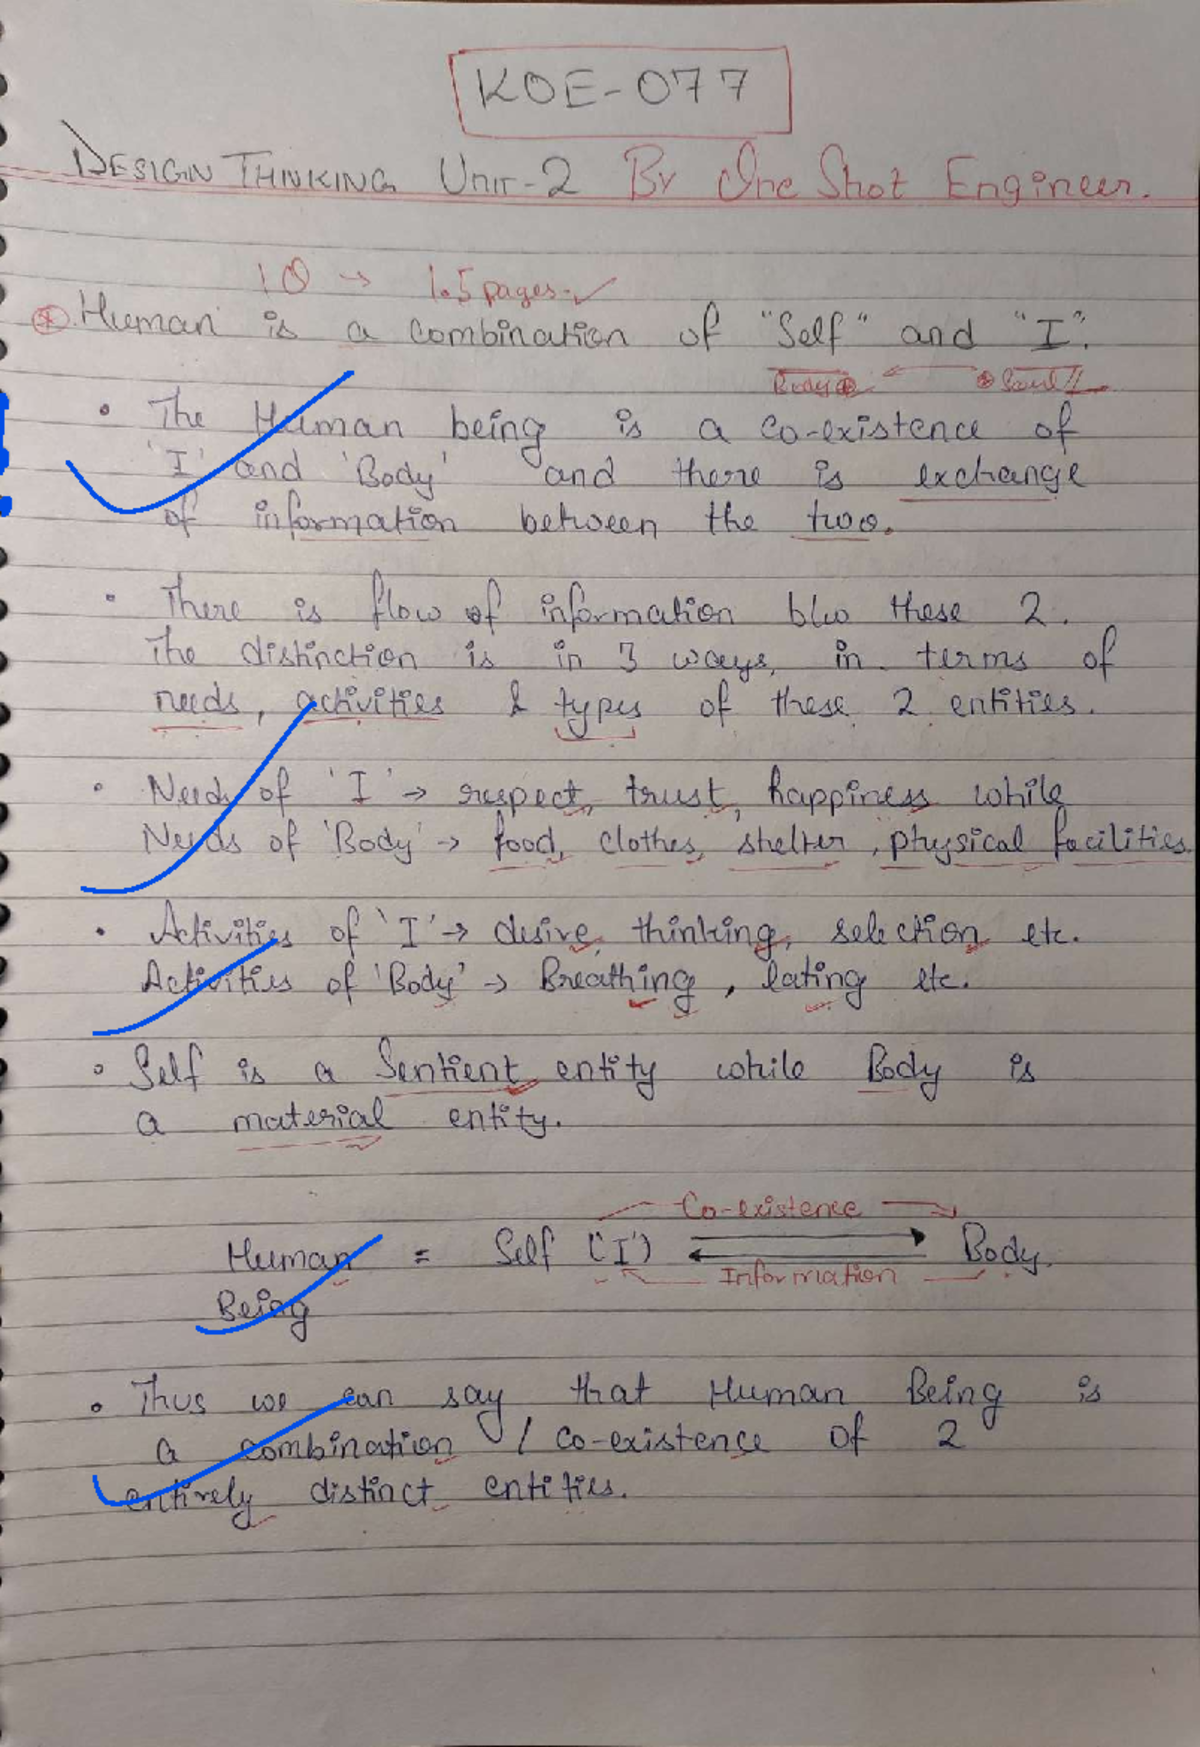 KOE-077
DESIGN THINKING UNIT-2 By One Shot Engineer.
1Q → 1.5 pages.
Human is a combination of "Self" and "I".
Body Soul
• The Human being is a co-existence of
'I' and 'Body' and there is exchange
of information between the two.
• There is flow of information b/w these 2.
The distinction is in 3 ways, in terms of
needs, activities & types of these 2 entities.
• Needs of 'I' → respect, trust, happiness while
Needs of 'Body' → food, clothes, shelter, physical facilities.
• Activities of 'I' → desire, thinking, selection etc.
Activities of 'Body' → Breathing, eating etc.
• Self is a Sentient entity while Body is
a material entity.
Co-existence
Human = Self ('I') Body.
Information
Being
• Thus we can say that Human Being is
a combination / co-existence of 2
entirely distinct entities.